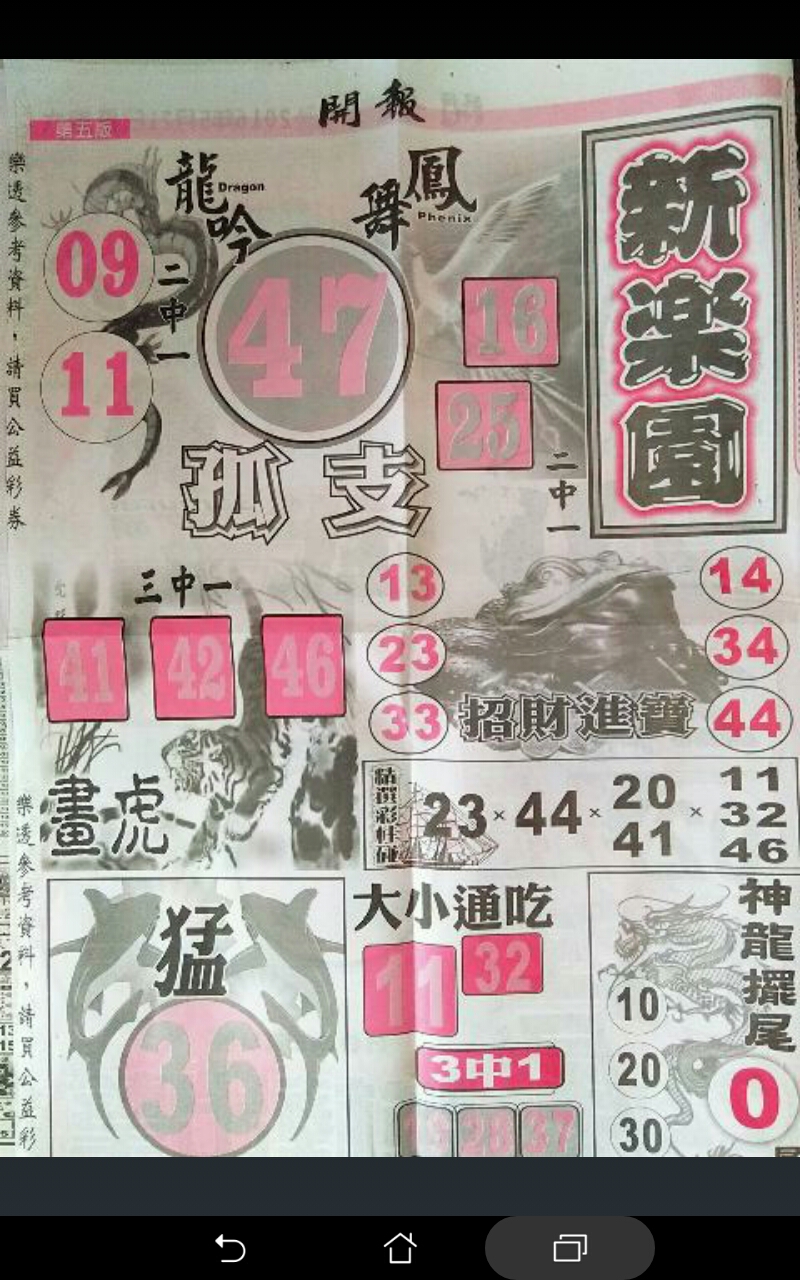 開報
第五版
樂透參考資料，請買公益彩券
龍吟
Dragon
鳳舞
Phenix
新楽園
09
11
二中一
47
孤支
16
25
二中一
三中一
41 42 46
畫虎
13
23
33
14
34
44
招財進寶
23×44×20 41×11 32 46
樂透參考資料，請買公益彩
猛
36
大小通吃
11 32
3中1
28 37
神龍擺尾
10
20
30
0